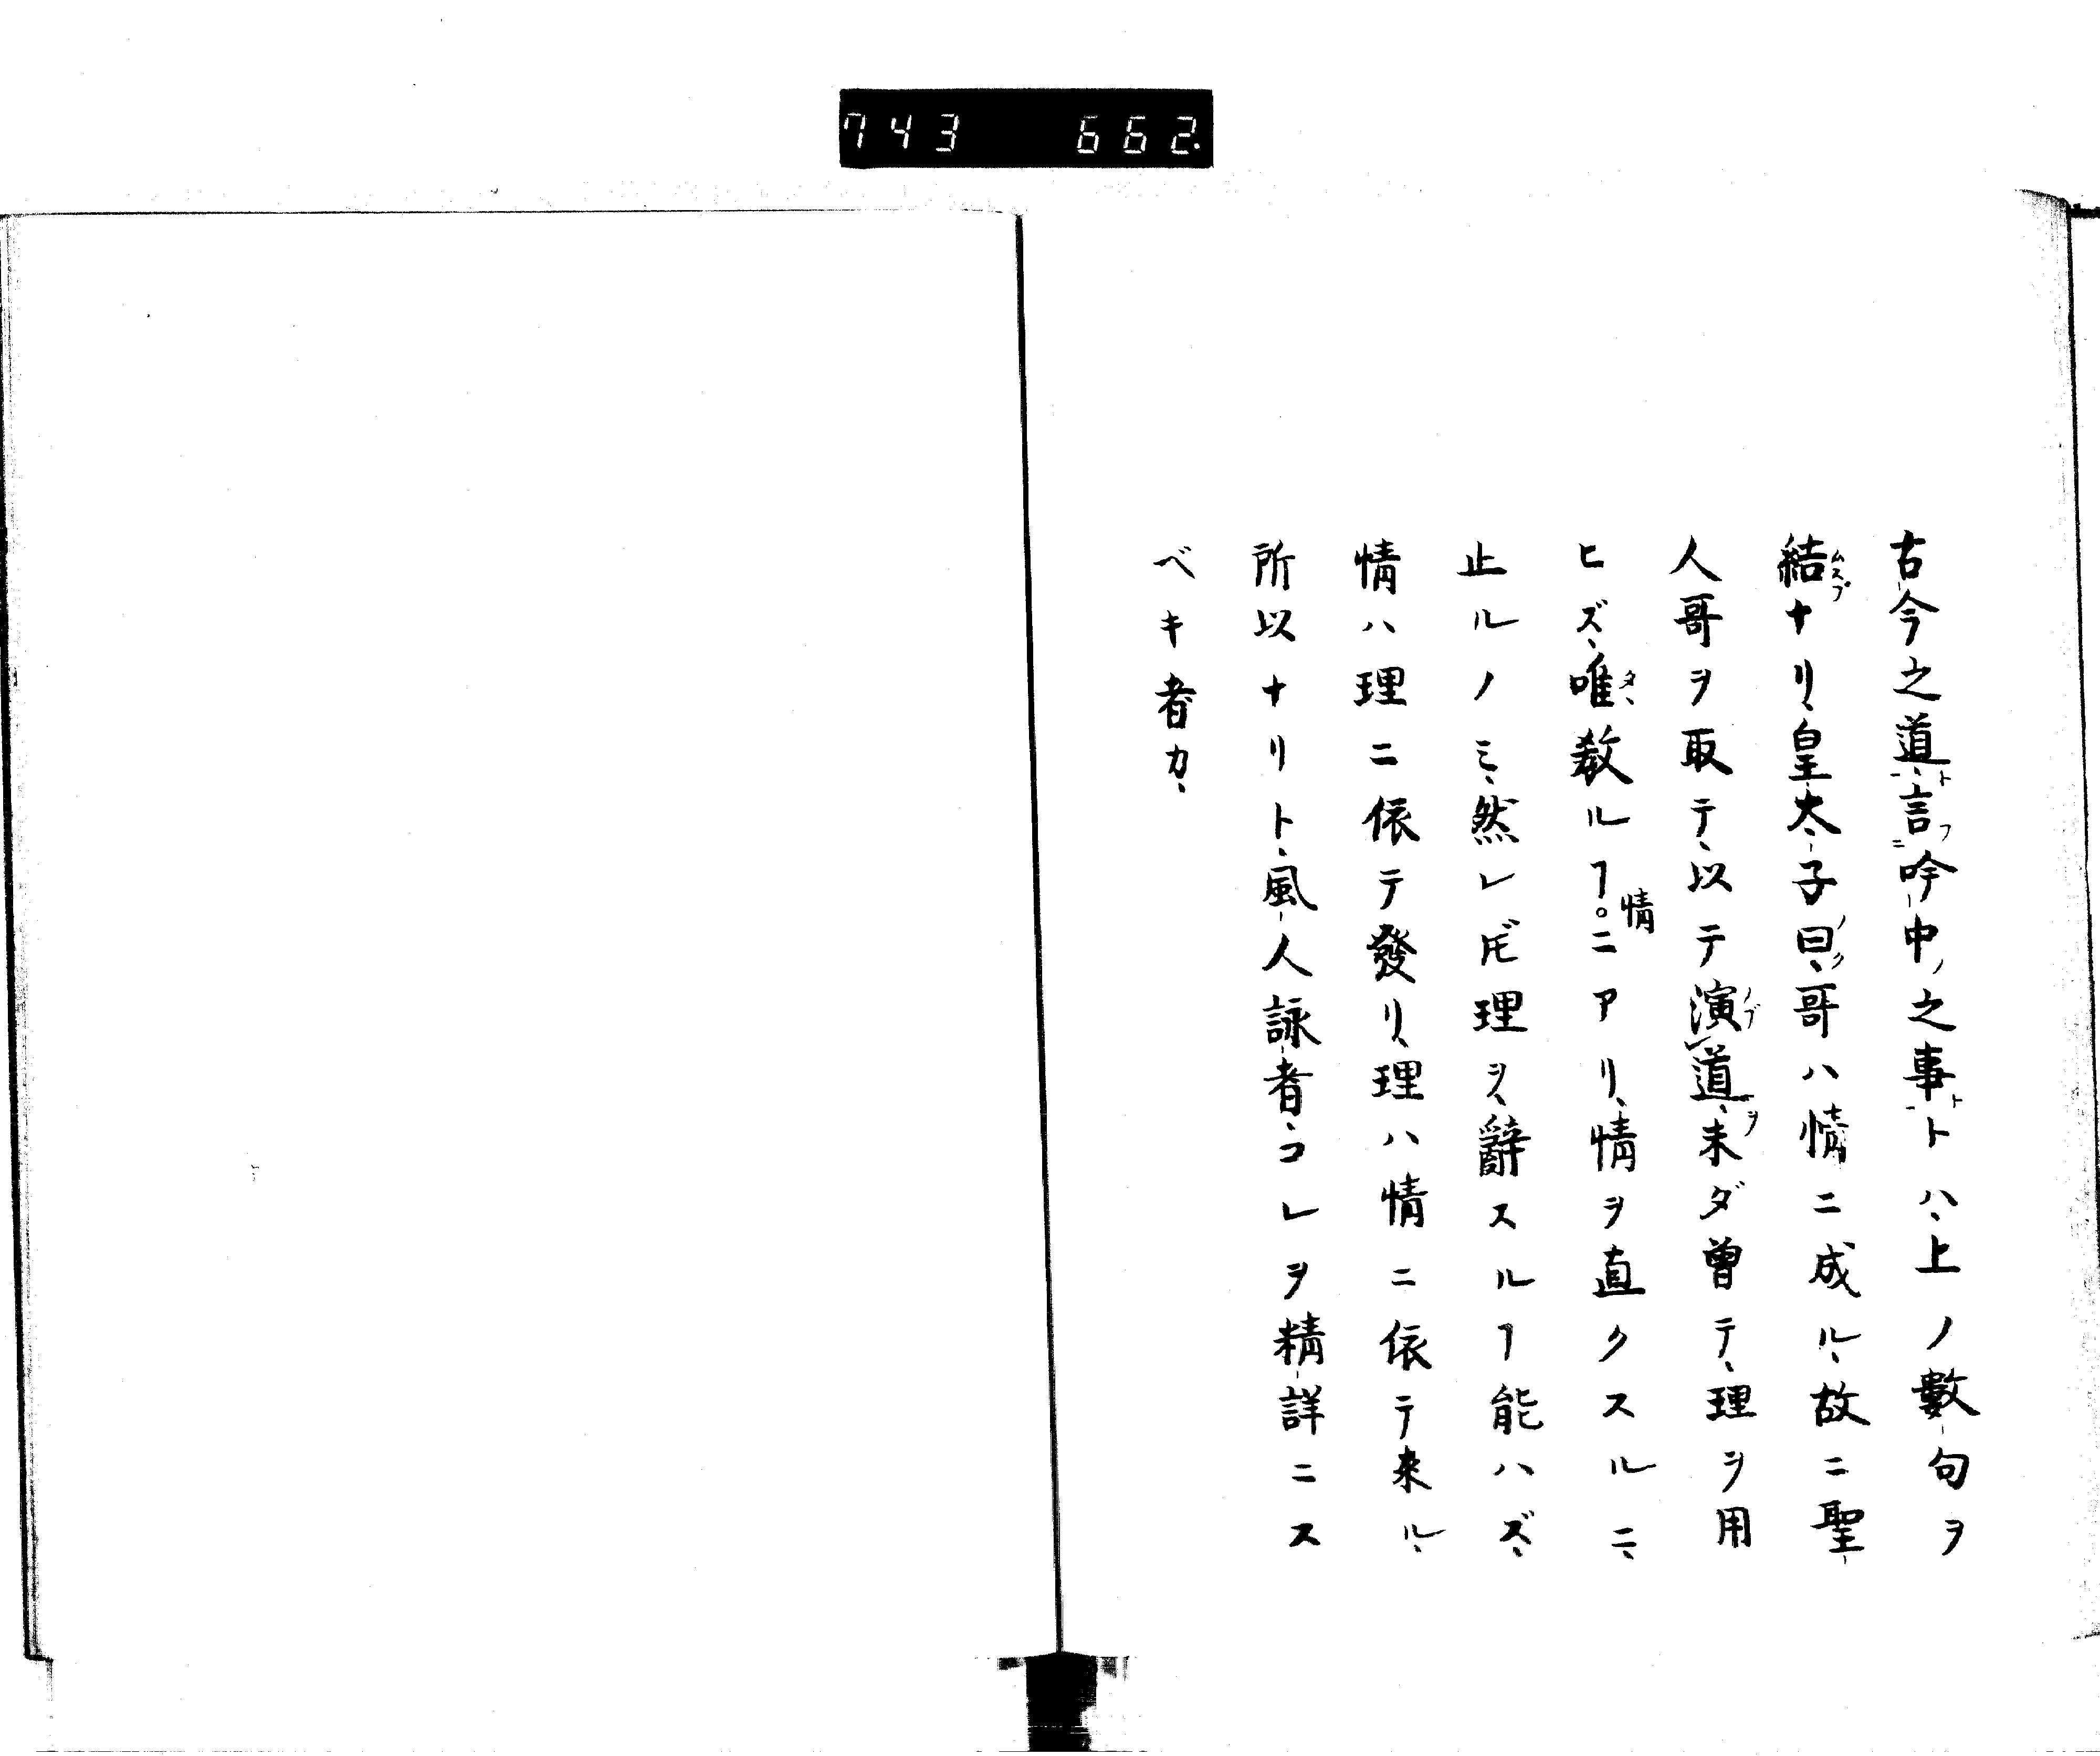 743 662.
古今之道、言吟中之事トハ、上ノ數句ヲ
結ナリ、皇太子曰、哥ハ情ニ成ル、故ニ聖
人哥ヲ取テ、以テ演道、未ダ曾テ、理ヲ用
ヒズ、唯教ルヿ。情ニアリ、情ヲ直クスルニ、
止ルノミ、然レㇳ゙モ理ヲ、辭スルヿ能ハズ、
情ハ理ニ依テ發リ、理ハ情ニ依テ来ル、
所以ナリト、風人詠者、コレヲ精詳ニス
ベキ者カ、